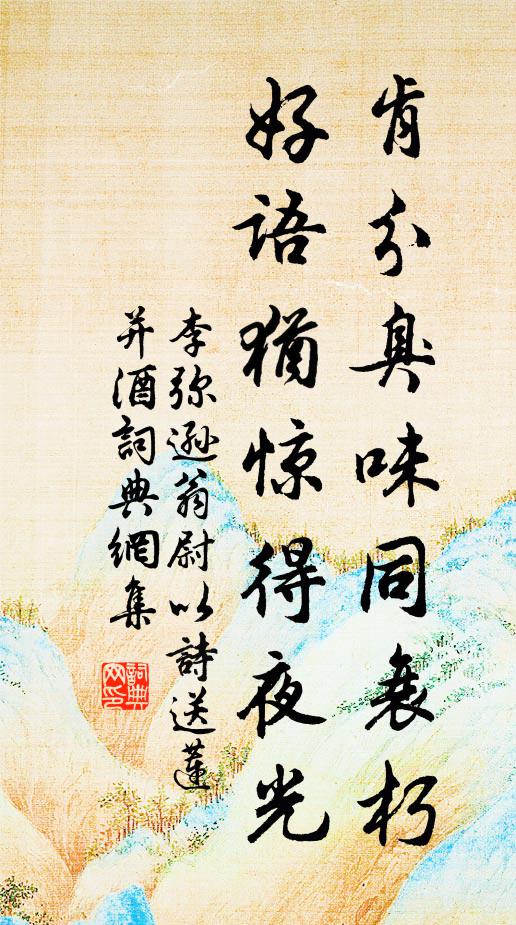 肯分臭味同衰朽
好语犹惊得夜光
李弥逊翁尉以詩送蓮
并酒詞典網集
詞典
网印